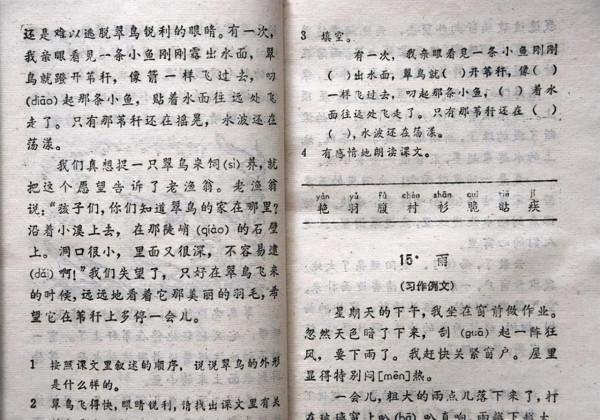 还是难以逃脱翠鸟锐利的眼睛。有一次，
我亲眼看见一条小鱼刚刚露出水面，翠
鸟就蹬开苇秆，像箭一样飞过去，叼
(diāo)起那条小鱼，贴着水面往远处飞
走了。只有那苇秆还在摇晃，水波还在
荡漾。
我们真想捉一只翠鸟来饲(sì)养，就
把这个愿望告诉了老渔翁。老渔翁
说：“孩子们，你们知道翠鸟的家在哪里？
沿着小溪上去，在那陡峭(qiào)的石壁
上。洞口很小，里面又很深，不容易逮
(dǎi)啊！”我们失望了，只好在翠鸟飞来
的时候，远远地看着它那美丽的羽毛，希
望它在苇秆上多停一会儿。
1 按照课文里叙述的顺序，说说翠鸟的外形
是什么样的。
2 翠鸟飞得快，眼睛锐利，请找出课文里有关
3 填空。
有一次，我亲眼看见一条小鱼刚刚
( )出水面，翠鸟就( )开苇秆，像( )
一样飞过去，叼起那条小鱼，( )着水
面往远处飞走了。只有那苇秆还在( )
( )，水波还在荡漾。
4 有感情地朗读课文。
yàn yǔ fù chèn shān cuì tiē jí
艳 羽 腹 衬 衫 脆 贴 疾
15· 雨
(习作例文)
星期天的下午，我坐在窗前做作业。
忽然天色暗了下来，刮(guā)起一阵狂
风，要下雨了。我赶快关紧窗户。屋里
显得特别闷[mēn]热。
一会儿，粗大的雨点儿落下来了，打
在玻璃窗上叭(bā)叭直响。雨越下越大。